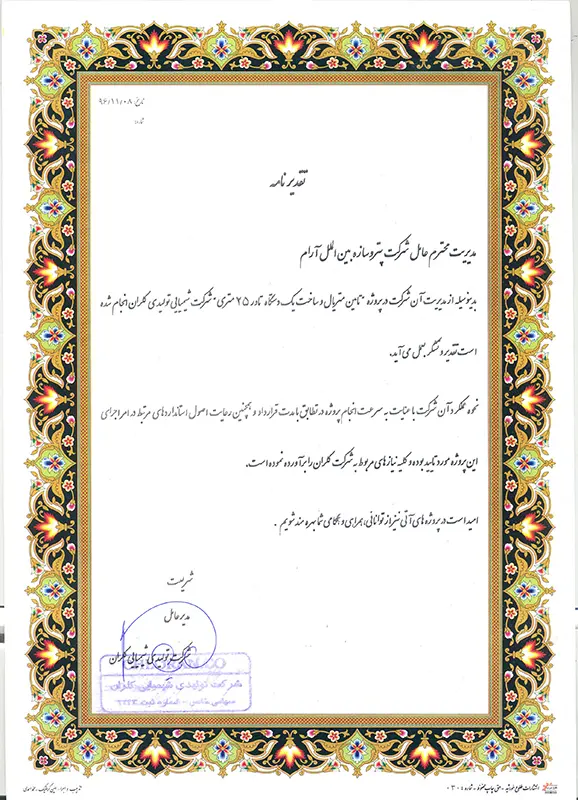 تاریخ: ۹۶/۱۱/۰۸
شماره:
تقدیر نامه
مدیریت محترم عامل شرکت پترو سازه بین الملل آرام
بدینوسیله از مدیریت آن شرکت در پروژه "تامین متریال و ساخت یک دستگاه تاور ۲۵ متری" شرکت شیمیایی تولیدی کلران انجام شده
است تقدیر و تشکر بعمل می آید.
نحوه عملکرد آن شرکت با عنایت به سرعت انجام پروژه در تطابق با مدت قرارداد و همچنین رعایت اصول استانداردهای مرتبط در امر اجرای
این پروژه مورد تایید بوده و کلیه نیازهای مربوط به شرکت کلران را برآورده نموده است.
امید است در پروژه های آتی نیز از توانائی، همراهی و همگامی شما بهره مند شویم .
شریعت
مدیر عامل
شرکت تولیدی شیمیایی کلران
شرکت تولیدی شیمیایی کلران
سهامی خاص - شماره ثبت